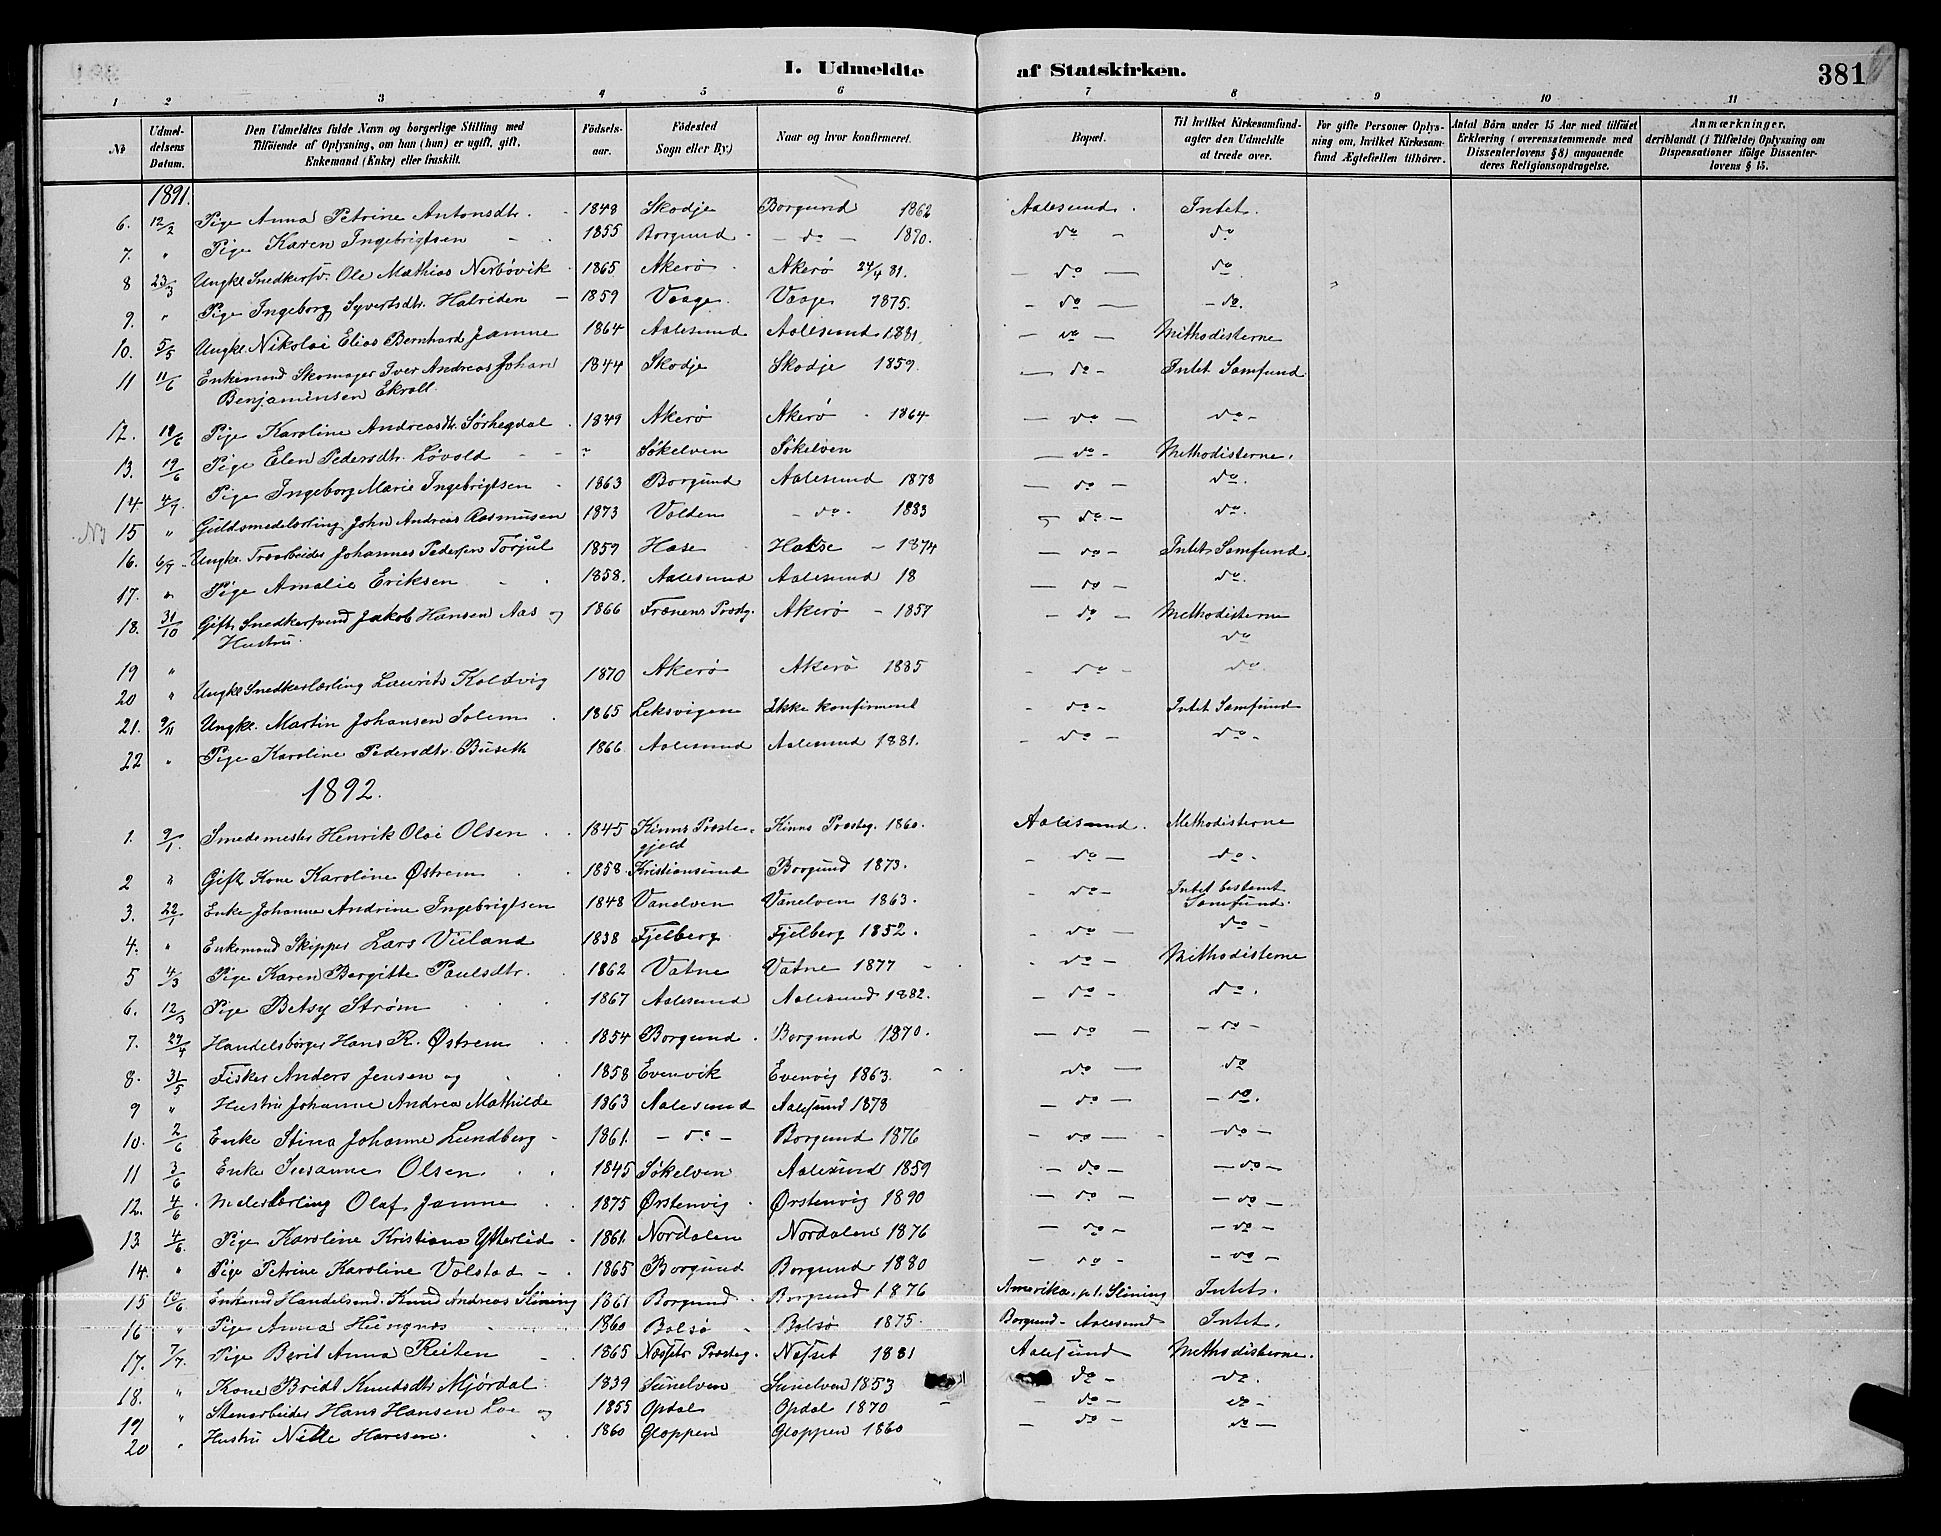 I. Udmeldte af Statskirken. 381
1 2 3 4 5 6 7 8 9 10 11
No | Udmeldelsens Datum. | Den Udmeldtes fulde Navn og borgerlige Stilling med Tilföiende af Oplysning, om han (hun) er ugift, gift, Enkemand (Enke) eller fraskilt. | Födselsaar. | Födested Sogn eller By) | Naar og hvor konfirmeret. | Bopæl. | Til hvilket Kirkesamfund agter den Udmeldte at træde over. | For gifte Personer Oplysning om, hvilket Kirkesamfund Ægtefællen tilhörer. | Antal Börn under 15 Aar med tilföiet Erklæring (overensstemmende med Dissenterlovens § 8) angaaende deres Religionsopdragelse. | Anmærkninger, deriblandt (i Tilfælde) Oplysning om Dispensationer ifölge Dissenterlovens § 15.
1891.
6. 12/2 Pige Anna Petrine Antonsdtr. 1848 Skodje Borgund 1862 Aalesund. Intet.
7. " Pige Karen Ingebrigtsen 1855 Borgund - do - 1870. do - do
8 23/3 Ungkl. Snedkersv. Ole Mathias Nerbövik 1865 Akerö Akerö 24/4 81. - do - do
9. " Pige Ingeborg Syvertsdtr. Halriden 1859 Vaage. Vaage 1875. - do - - do.
10. 5/5 Ungkl. Nikolai Elias Bernhard Jamne 1864 Aalesund Aalesund 1881. - do - Methodisterne
11 11/6 Enkemand Skomager Iver Andreas Johan 1844 Skodje Skodje 1859. - do - Intet Samfund
Benjaminsen Ekroll.
12. 18/6 Pige Karoline Andreasdtr. Sörhegdal 1849 Akerö Akerö 1864 - do - do -
13. 19/6 Pige Elen Pedersdtr. Lövold - - ? Sökelven Sökelven - do - Methodisterne.
14 4/7. Pige Ingeborg Marie Ingebrigtsen 1863 Borgund Aalesund 1878 - do - do.
15 " Guldsmedlærling John Andreas Rasmusen 1873 Volden - do. 1883 - do - do.
16. 6/7 Ungkl. Træarbeider Johannes Pedersen Torjul 1859 Hase Halse - 1874 - do - Intet Samfund.
17. " Pige Amalie Eriksen 1858. Aalesund Aalesund 18 - do - do.
18. 31/10 Gift Snedkersvend Jakob Hansen Aas og 1866 Frænens Prestg. Akerö - 1857 - do - Methodisterne
Hustru. do
19 " 
20 " Ungkl Snedkerlærling Laurits Koldvig 1870 Akerö Akerö 1885 - do - do.
21. 9/11 Ungkl. Martin Johansen Solem 1865 Leksvigen Ikke konfirmeret - do - Intet Samfund
22 " Pige Karoline Pedersdtr. Buseth 1866 Aalesund Aalesund 1881. - do - - do -
1892.
1. 9/1. Smedemester Henrik Olai Olsen 1845 Kinns Preste- Kinns Prestg. 1860. Aalesund. Methodisterne
gjeld
2 " Gift Kone Karoline Östrem 1858 Kristiansund Borgund 1873. - do - - do -
3. 22/1 Enke Johanne Andrine Ingebrigtsen 1848 Vanelven Vanelven 1863. - do - Intet bestemt Samfund.
4. " Enkemand Skipper Lars Vieland 1838 Fjelberg Fjelberg 1852. - do - do -
5 4/3 Pige Karen Bergitte Paulsdtr. 1862 Vatne Vatne 1877 - do - Methodisterne
6. 12/3 Pige Betsy Ström 1867 Aalesund Aalesund 1882. - do - do.
7. 27/4 Handelsborger Hans R. Östrem 1854 Borgund. Borgund 1870. - do - - do -
8. 31/5 Fisker Anders Jensen og 1858 Evenvik Evenvig 1863. do - do
9 " Hustru Johanne Andrea Mathilde 1863 Aalesund Aalesund 1878 - do - - do.
10. 2/6 Enke Stina Johanne Lundberg - 1861. - do - Borgund 1876 - do - - do -
11 3/6 Enke Susanne Olsen 1845 Sökelven Aalesund 1859 - do - - do -
12. 4/6 Malerlærling Olaf Jamne 1875 Örstenvig Örstenvig 1890 - do - - do -
13. 4/6. Pige Karoline Kristiane Ytterlid 1861. Nordalen Nordalen 1876 - do - - do -
14. " Pige Petrine Karoline Volstad - 1865 Borgund Borgund 1880 - do - - do -
15 10/6 Enkemd Handelsmd. Knud Andreas Slining 1861 Borgund Borgund 1876 Amerika, p.t. Slining Intet.
16 " Pige Anna Hungnæs 1860 Bolsö Bolsö 1875. Borgund - Aalesund Intet.
17. 7/7. Pige Berit Anna Reiten 1865 Næssets Prestg. Næsset 1881 Aalesund Methodisterne.
18. " Kone Bridt Knudsdtr Mjördal 1839 Sunelven Sunelven 1853 do - do.
19 " Stenarbeider Hans Hansen Loe og 1855 Opdal Opdal 1870 - do - do -
20 " Hustru Nille Hansen. 1860 Gloppen Gloppen 1860 - do - do -